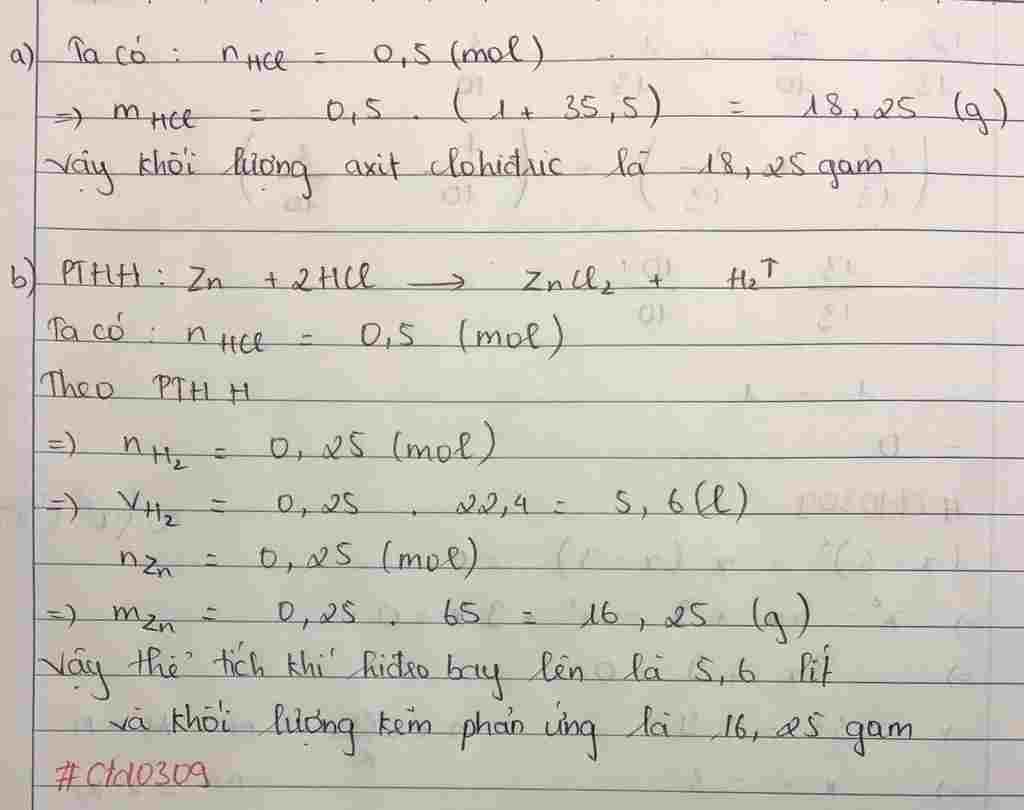 a) Ta có : nHCl = 0,5 (mol)
=> mHCl = 0,5 . (1 + 35,5) = 18,25 (g)
Vậy khối lượng axit clohiđric là 18,25 gam
b) PTHH : Zn + 2HCl → ZnCl₂ + H₂↑
Ta có : nHCl = 0,5 (mol)
Theo PTHH
=> nH₂ = 0,25 (mol)
=> VH₂ = 0,25 . 22,4 = 5,6 (l)
nZn = 0,25 (mol)
=> mZn = 0,25 . 65 = 16,25 (g)
Vậy thể tích khí hiđro bay lên là 5,6 lít
và khối lượng kẽm phản ứng là 16,25 gam
#Ctd0309